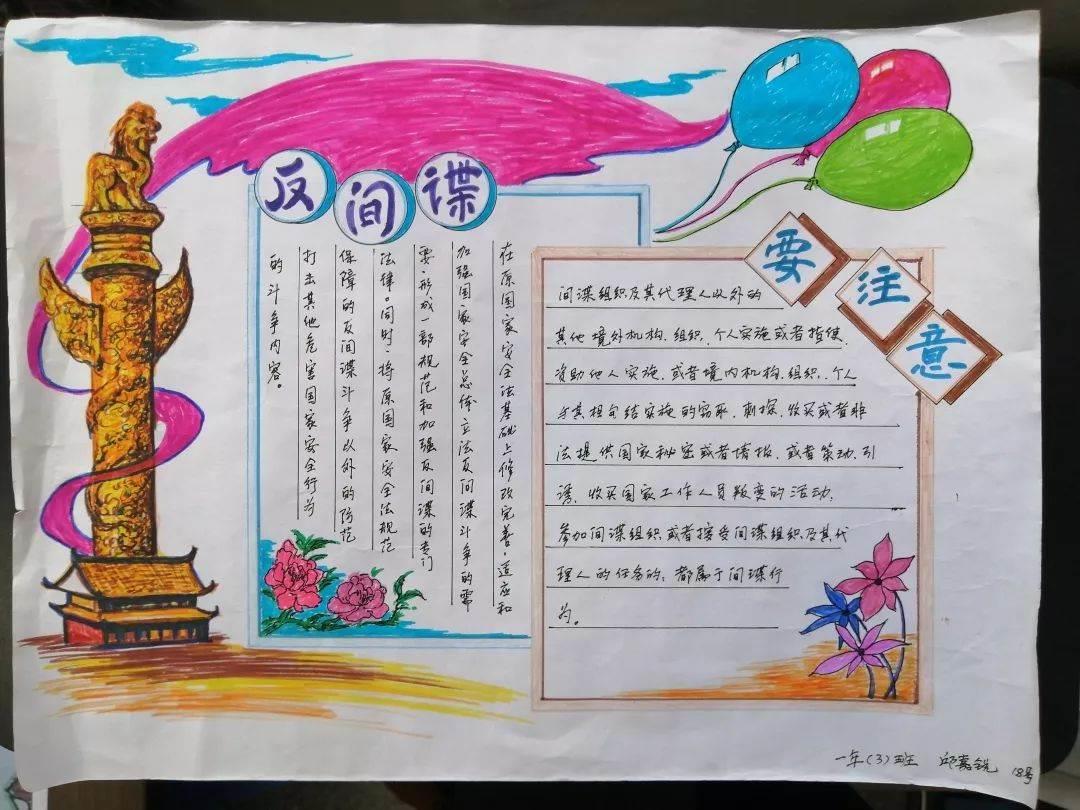 反间谍
在原国家安全法基础上修改完善,适应和
加强国家安全总体立法反间谍斗争的需
要,形成一部规范和加强反间谍的专门
法律。同时,将原国家安全法规范
保障的反间谍斗争以外的防范
打击其他危害国家安全行为
的斗争内容。
要注意
间谍组织及其代理人以外的
其他境外机构、组织、个人实施或者指使、
资助他人实施,或者境内机构、组织、个人
与其相勾结实施的窃取、刺探、收买或者非
法提供国家秘密或者情报,或者策动、引
诱、收买国家工作人员叛变的活动,
参加间谍组织或者接受间谍组织及其代
理人的任务的,都属于间谍行
为。
一年(3)班 邱嘉锐 18号